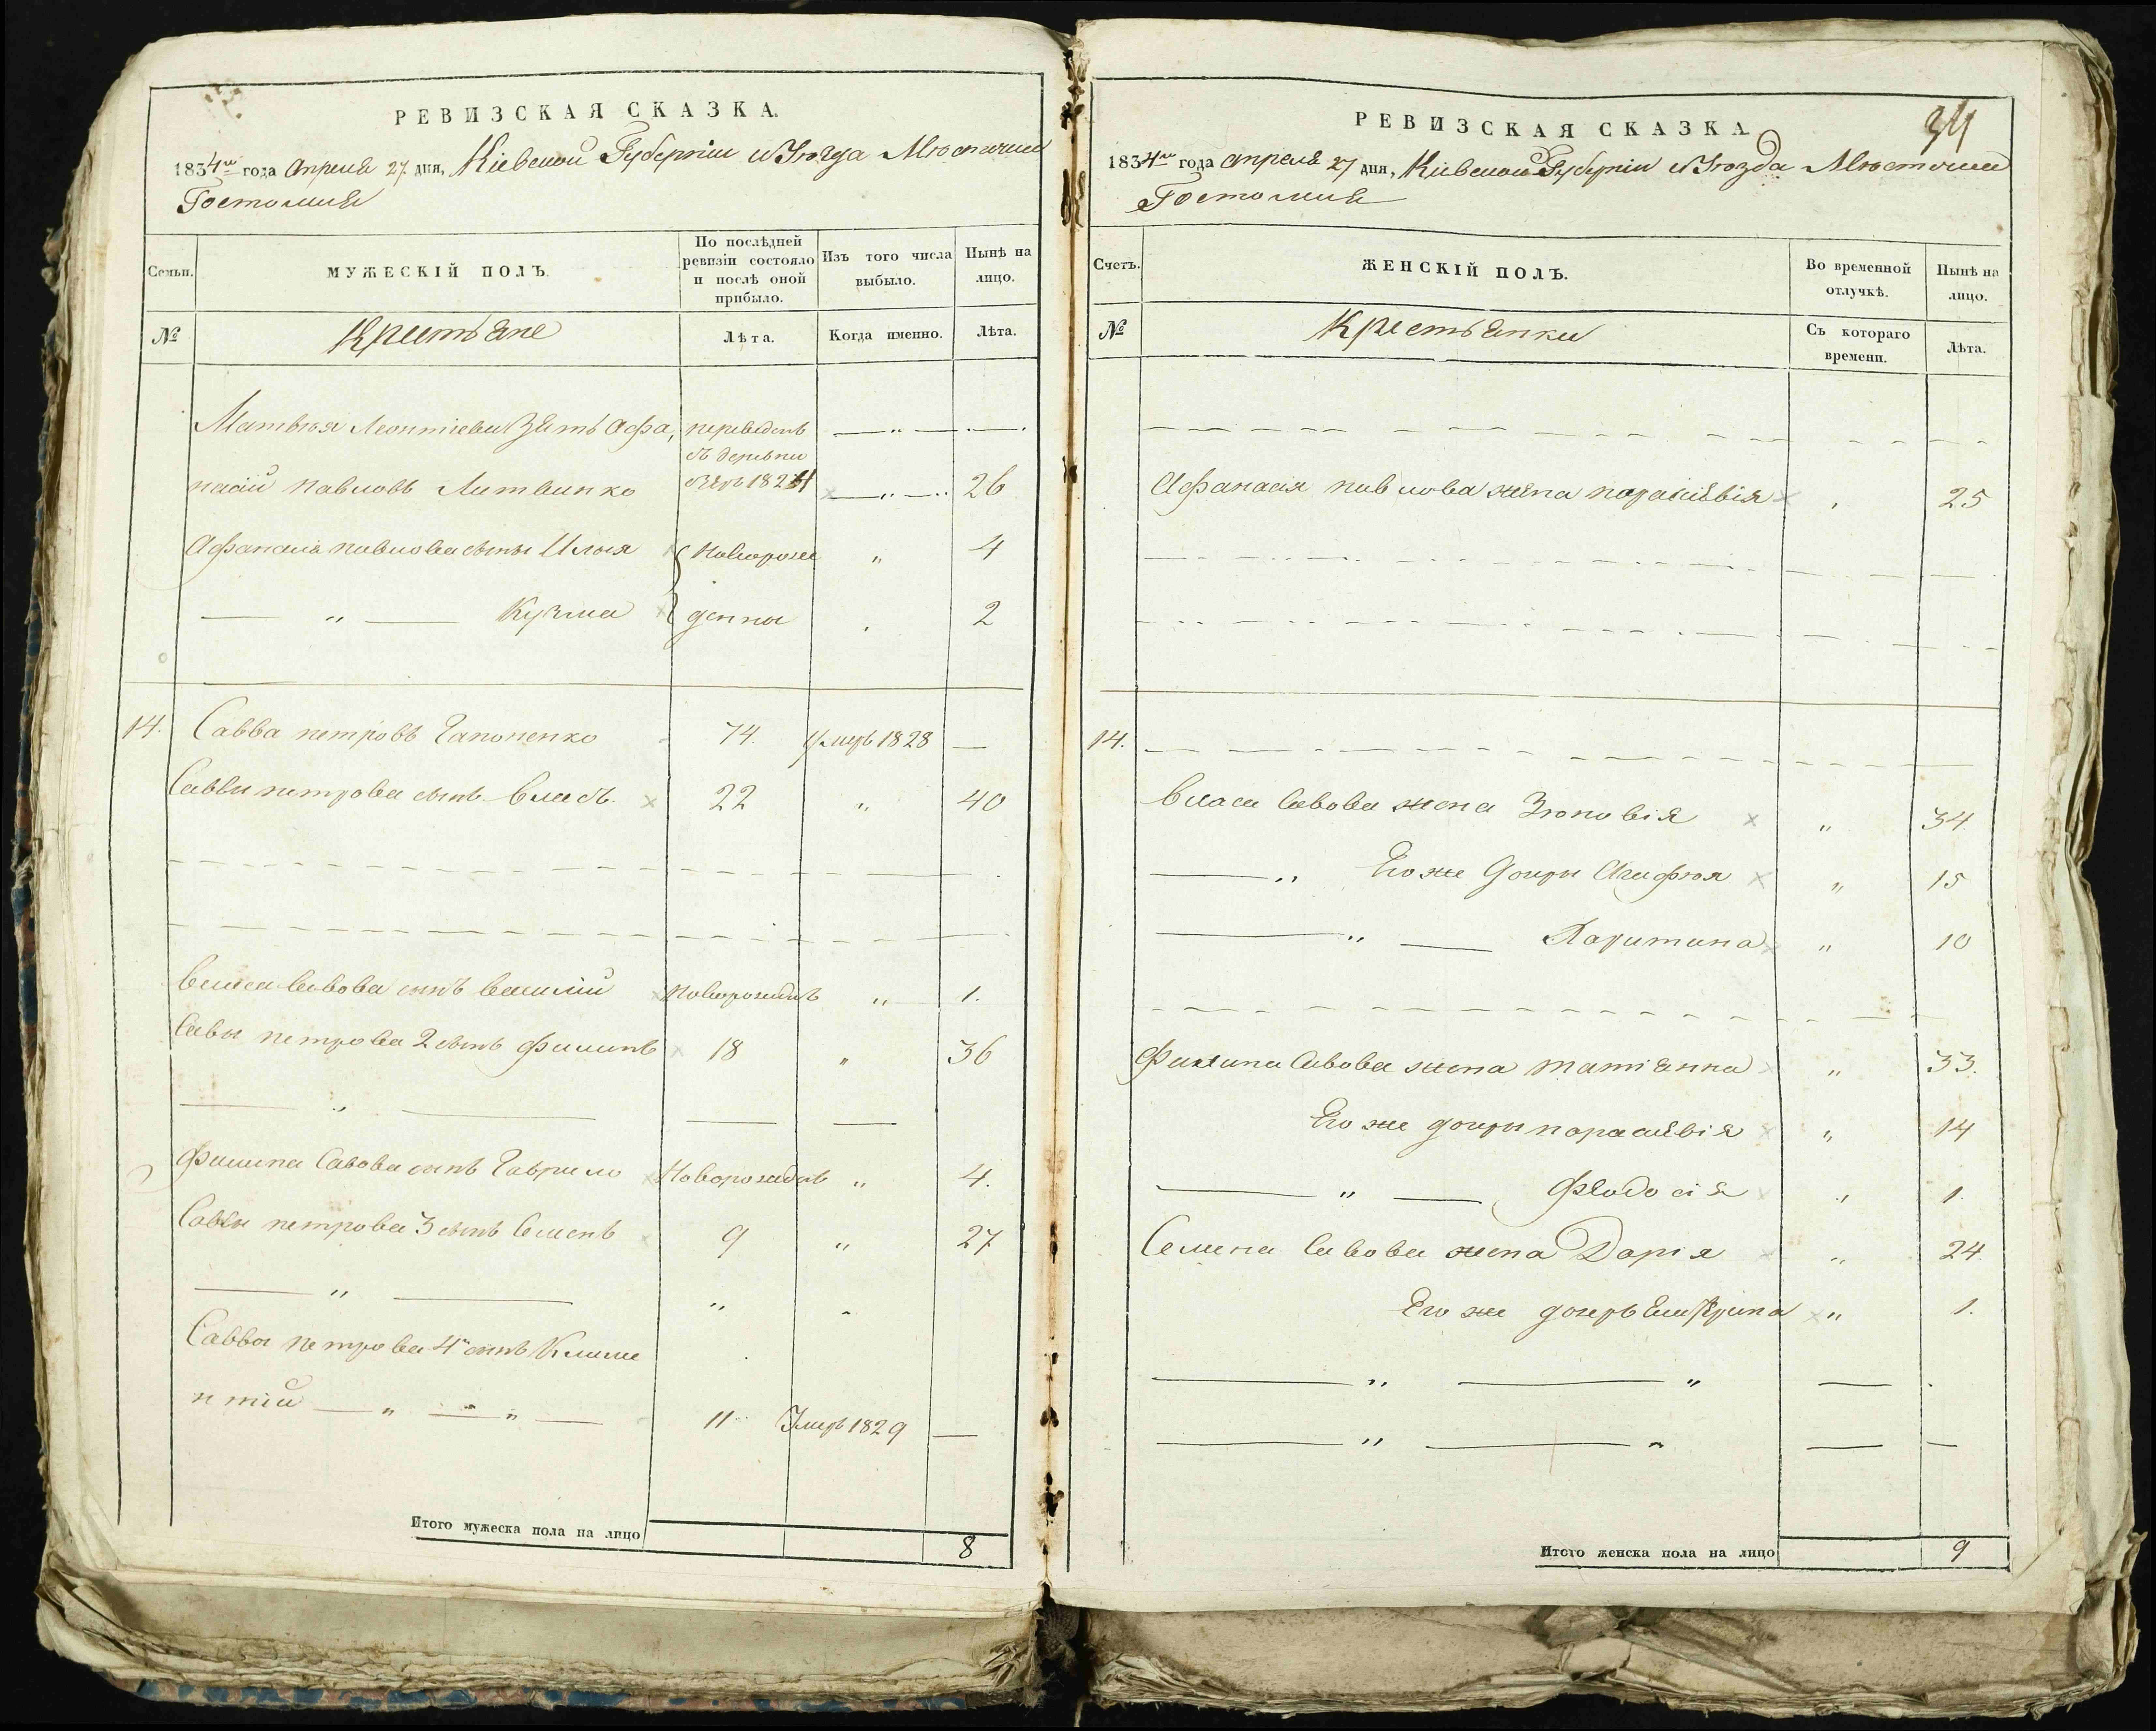 РЕВИЗСКАЯ СКАЗКА.
1834го года Апреля 27 дня, Кіевской Губерніи и Уезда Мѣстечка
Гостомля
Семьи.
МУЖЕСКІЙ ПОЛЪ.
По послѣдней ревизіи состояло и послѣ оной прибыло.
Изъ того числа выбыло.
Нынѣ на лицо.
№
Крестьяне
Лѣта.
Когда именно.
Лѣта.
Матвѣя Леонтіева Зять Афа, переведенъ
съ деревни
насій Павловъ Литвинко 26
Афанасія Павлова сыны Илья Новорож 4
— „ — Кузма денны „ 2
14. Савва петровъ Гапоненко 74. Умеръ 1828 —
Саввы петрова сынъ Власъ. 22 „ 40
Власа Савова сынъ Василій Новорожденъ „ 1.
Савы петрова 2 сынъ Филипъ 18 „ 36
— „ — — —
Филипа Савова сынъ Гаврило Новорожденъ „ 4.
Саввы петрова 3 сынъ Семенъ 9 „ 27
— „ — „ „
Саввы петрова 4й сынъ Климе
нтій — „ — „ — 11 Умеръ 1829 —
Итого мужеска пола на лицо 8
34
РЕВИЗСКАЯ СКАЗКА
1834го года Апреля 27 дня, Кіевской Губерніи и Уѣзда Мѣстечка
Гостомля
Счетъ.
ЖЕНСКІЙ ПОЛЪ.
Во временной отлучкѣ.
Нынѣ на лицо.
№
Крестьянки
Съ котораго времени.
Лѣта.
Афанасія павлова жена параскѣвія „ 25
14.
Власа Савова жена Зѣновія „ 34
— „ Его же Дочери Агафѣя „ 15
— „ — Харитина „ 10
Филипа Савова жена татіянна „ 33.
Его же дочери параскѣвія „ 14
— „ — Феодосія „ 1.
Семена Савова жена Дарія „ 24.
Его же дочерь „ 1.
— „ — „ —
— „ — „ — —
Итого женска пола на лицо 9